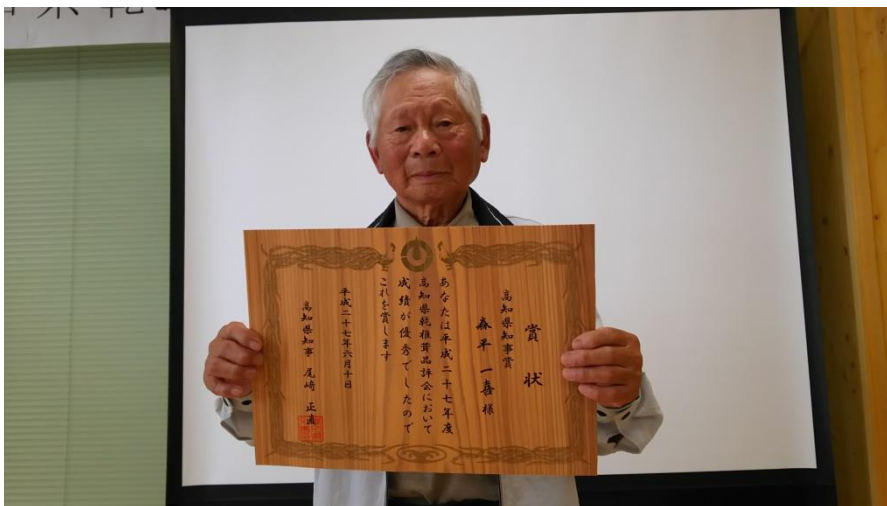 賞状
高知県知事賞
森平一喜様
あなたは平成二十七年度
高知県乾椎茸品評会において
成績が優秀でしたので
これを賞します
平成二十七年六月十日
高知県知事 尾﨑正直